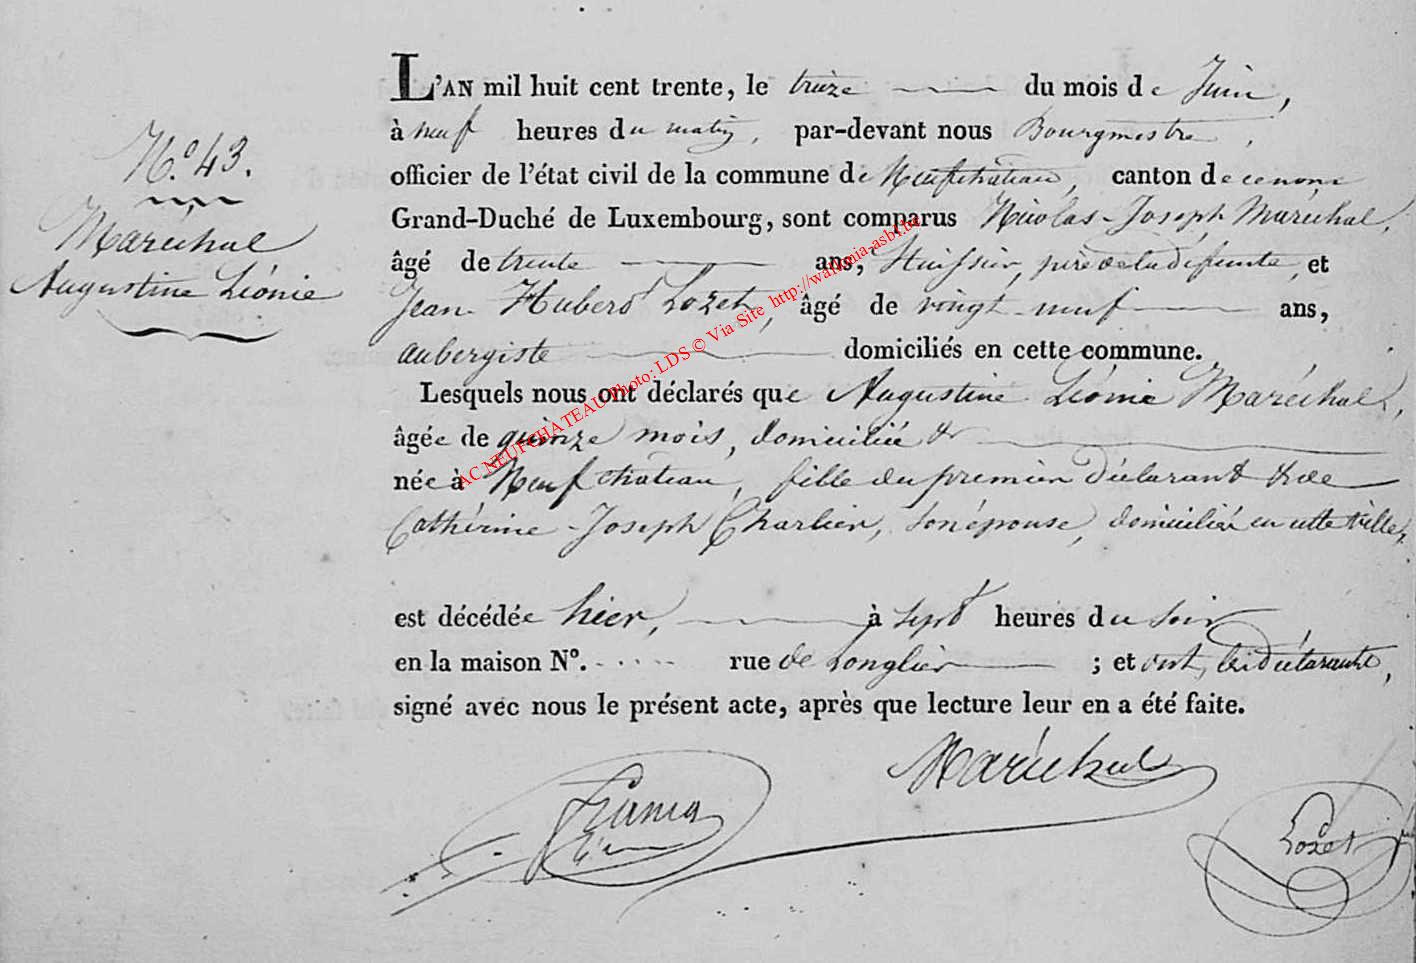 N.° 43.
Maréchal
Augustine Léonie
L'AN mil huit cent trente, le treize du mois de Juin,
à neuf heures du matin, par-devant nous Bourgmestre,
officier de l'état civil de la commune de Neufchâteau, canton de ce nom,
Grand-Duché de Luxembourg, sont comparus Nicolas-Joseph Maréchal,
âgé de trente ans, huissier, père de la défunte, et
Jean Hubert Lozet, âgé de vingt-neuf ans,
aubergiste domiciliés en cette commune.
Lesquels nous ont déclarés que Augustine Léonie Maréchal,
âgée de quinze mois, domiciliée &
née à Neufchâteau, fille du premier Déclarant & de
Cathérine-Joseph Charlier, son épouse, domiciliés en cette ville,
est décédée hier, à sept heures du soir
en la maison N°. ..... rue de Longlier ; et ont, les déclarants,
signé avec nous le présent acte, après que lecture leur en a été faite.
Maréchal
Lozet
AC NEUFCHATEAU Photo: LDS © Via Site http://wallonia-asbl.be